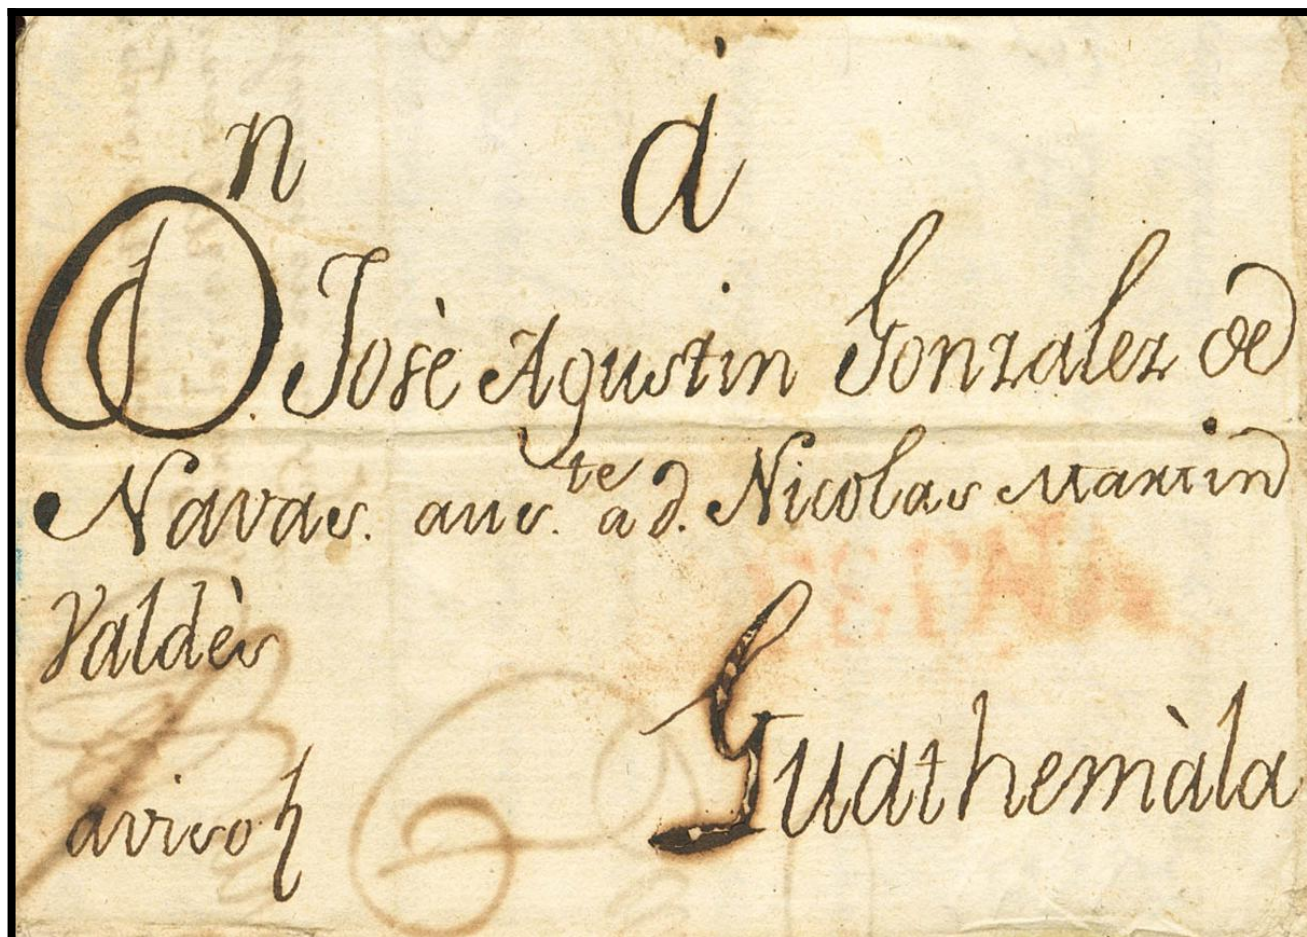 á
Dn José Agustin Gonzalez de
Navas. aus.te á d. Nicolas Martin
Valdès
Guathemàla